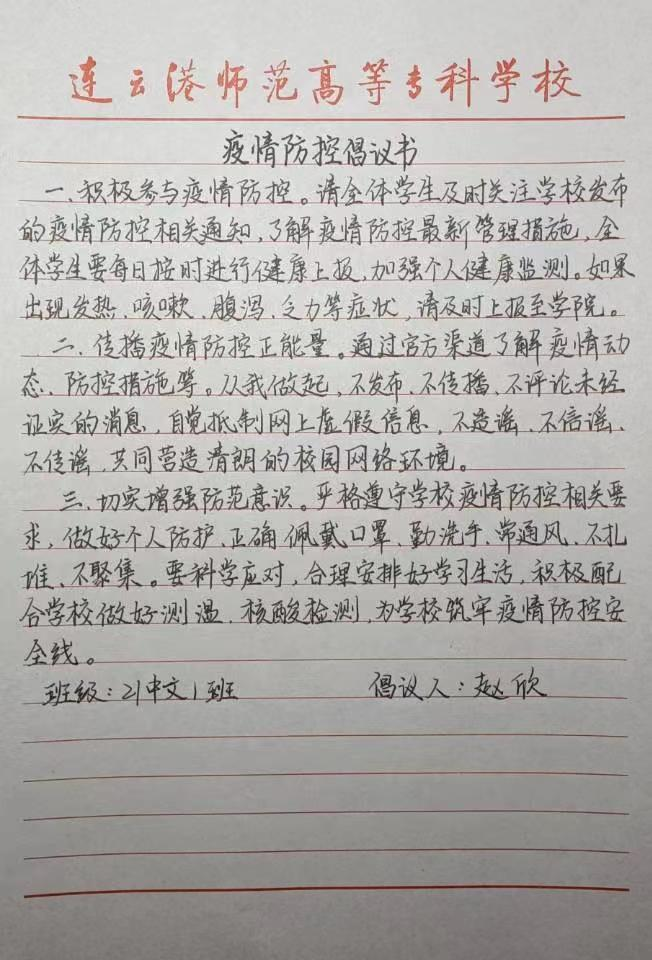 连云港师范高等专科学校
疫情防控倡议书
一、积极参与疫情防控。请全体学生及时关注学校发布
的疫情防控相关通知,了解疫情防控最新管理措施,全
体学生要每日按时进行健康上报,加强个人健康监测。如果
出现发热、咳嗽、腹泻、乏力等症状,请及时上报至学院。
二、传播疫情防控正能量。通过官方渠道了解疫情动
态、防控措施等。从我做起,不发布、不传播、不评论未经
证实的消息,自觉抵制网上虚假信息,不造谣、不信谣、
不传谣,共同营造清朗的校园网络环境。
三、切实增强防范意识。严格遵守学校疫情防控相关要
求,做好个人防护、正确佩戴口罩、勤洗手、常通风、不扎
堆、不聚集。要科学应对,合理安排好学习生活,积极配
合学校做好测温、核酸检测,为学校筑牢疫情防控安
全线。
班级:21中文1班 倡议人:赵欣